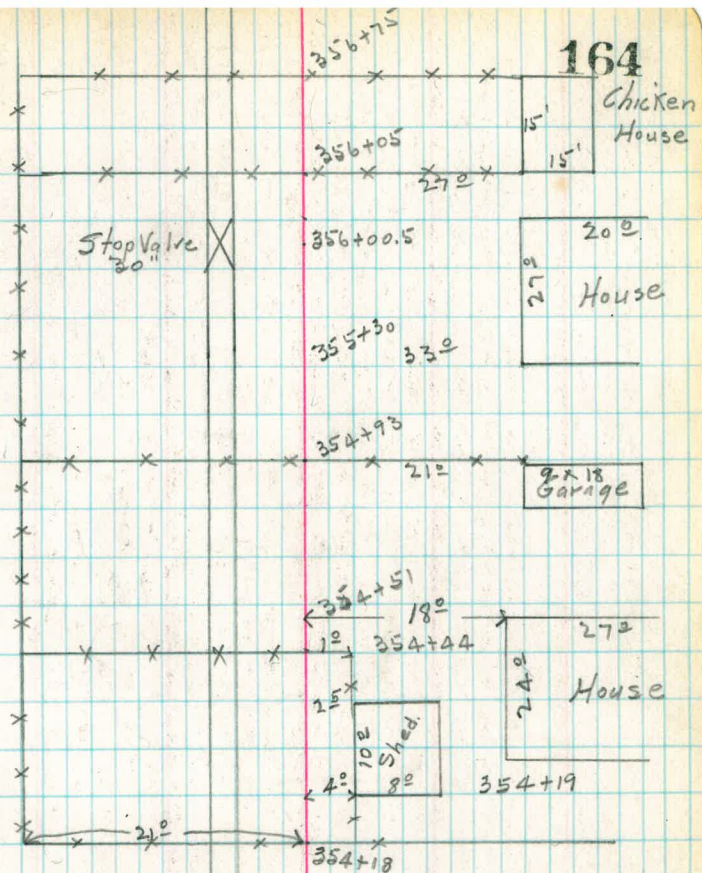 164
356+75
Chicken
House
15'
15'
356+05
27º
Stop Valve
30"
356+00.5
20º
27º
House
355+30
33º
354+93
21º
9 x 18
Garage
354+51
18º
27º
1º
354+44
24º
House
10º
Shed.
4º
8º
354+19
21º
354+18